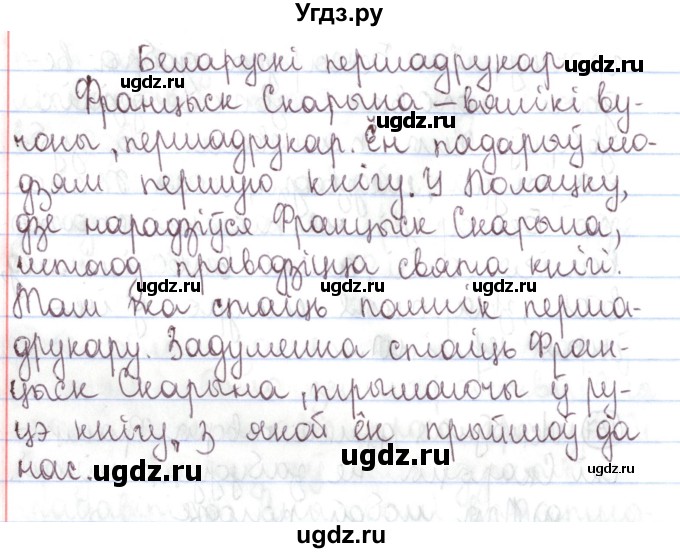 Угдз.ру
Беларускі першадрукар
ugdz.ru
ugdz.ru
Францыск Скарына – вялікі ву-
ugdz.ru
чоны, першадрукар. Ён падарыў лю-
дзям першую кнігу. У Полацку,
ugdz.ru
дзе нарадзіўся Францыск Скарына,
штогод праводзіцца свята кнігі.
ugdz.ru
ugdz.ru
Там жа стаіць помнік перша-
друкару. Задуменна стаіць Фран-
ugdz.ru
цыск Скарына, трымаючы ў ру-
цэ кнігу, з якой ён прыйшоў да
ugdz.ru
ugdz.ru
нас.
ugdz.ru
ugdz.ru